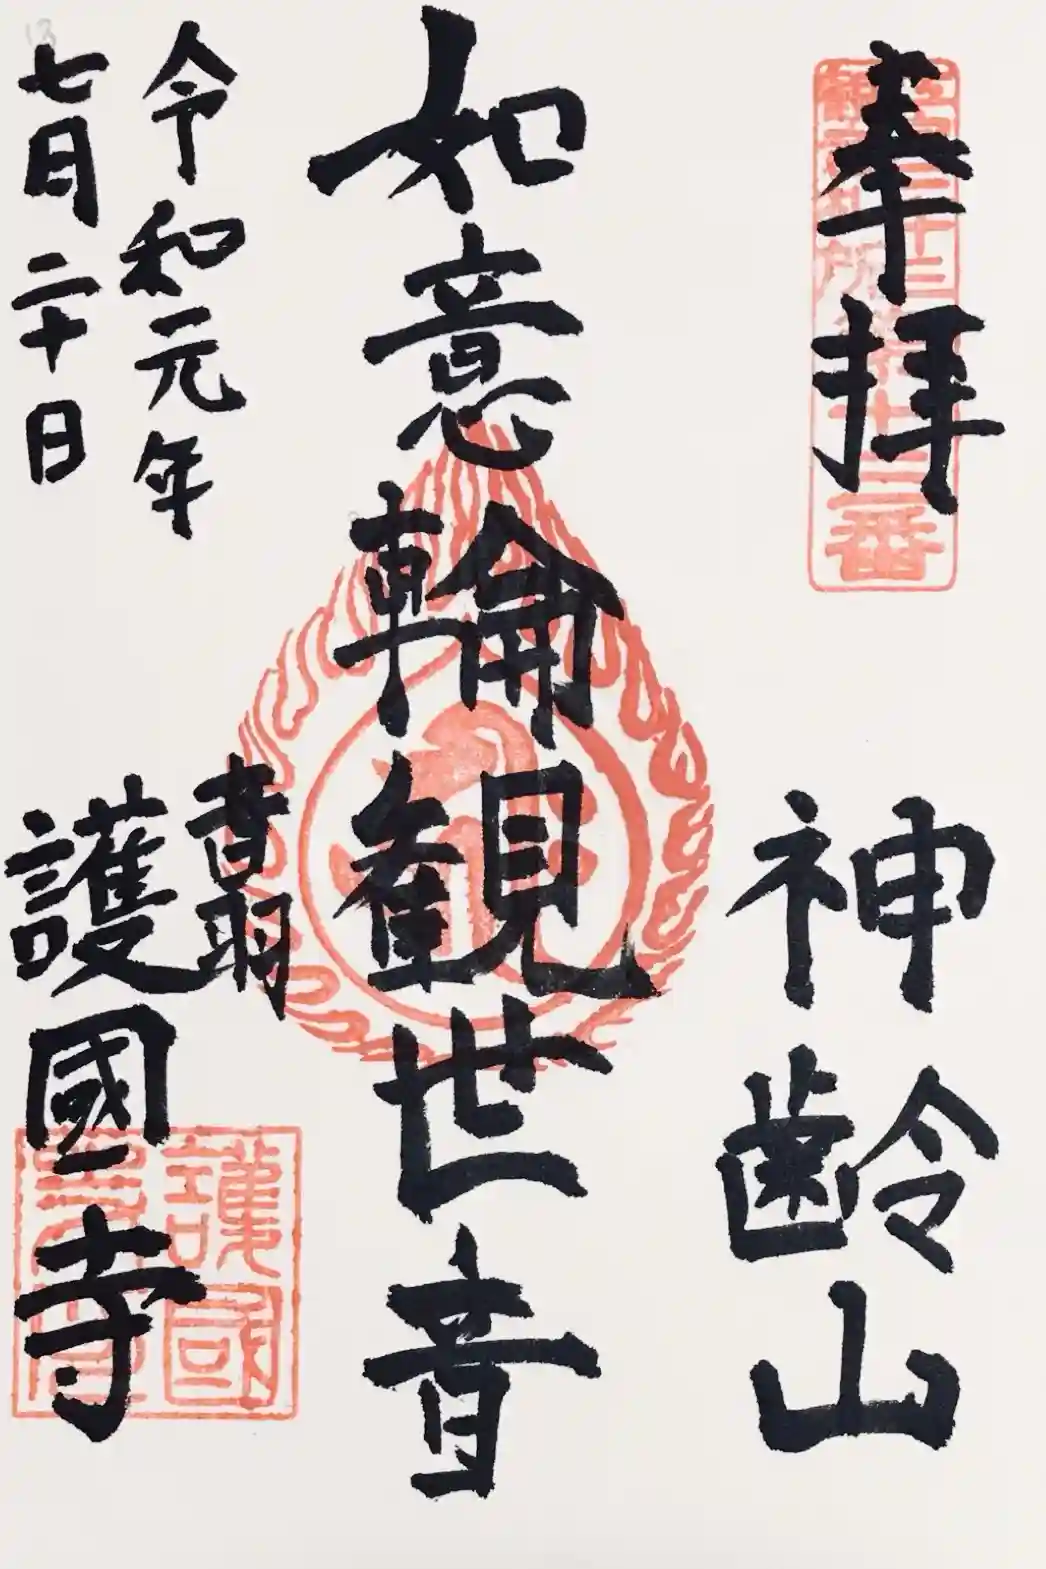 奉拝
神齢山
如意輪観世音
音羽
護國寺
令和元年
七月二十日
護國